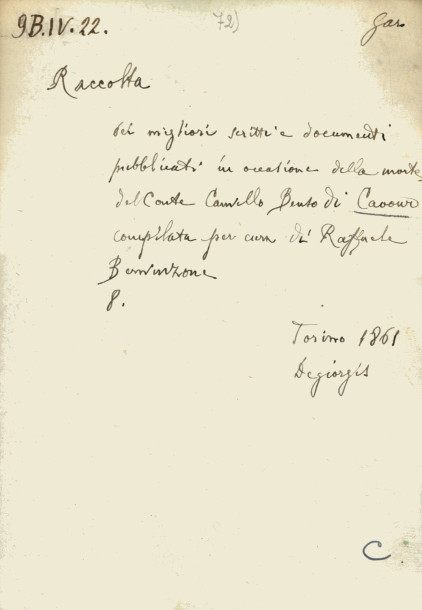 9B.IV.22.
72)
Gar
Raccolta
dei migliori scritti e documenti
pubblicati in occasione della morte
del Conte Camillo Benso di Cavour
compilata per cura di Raffaele
8.
Torino 1861
Degiorgis
C